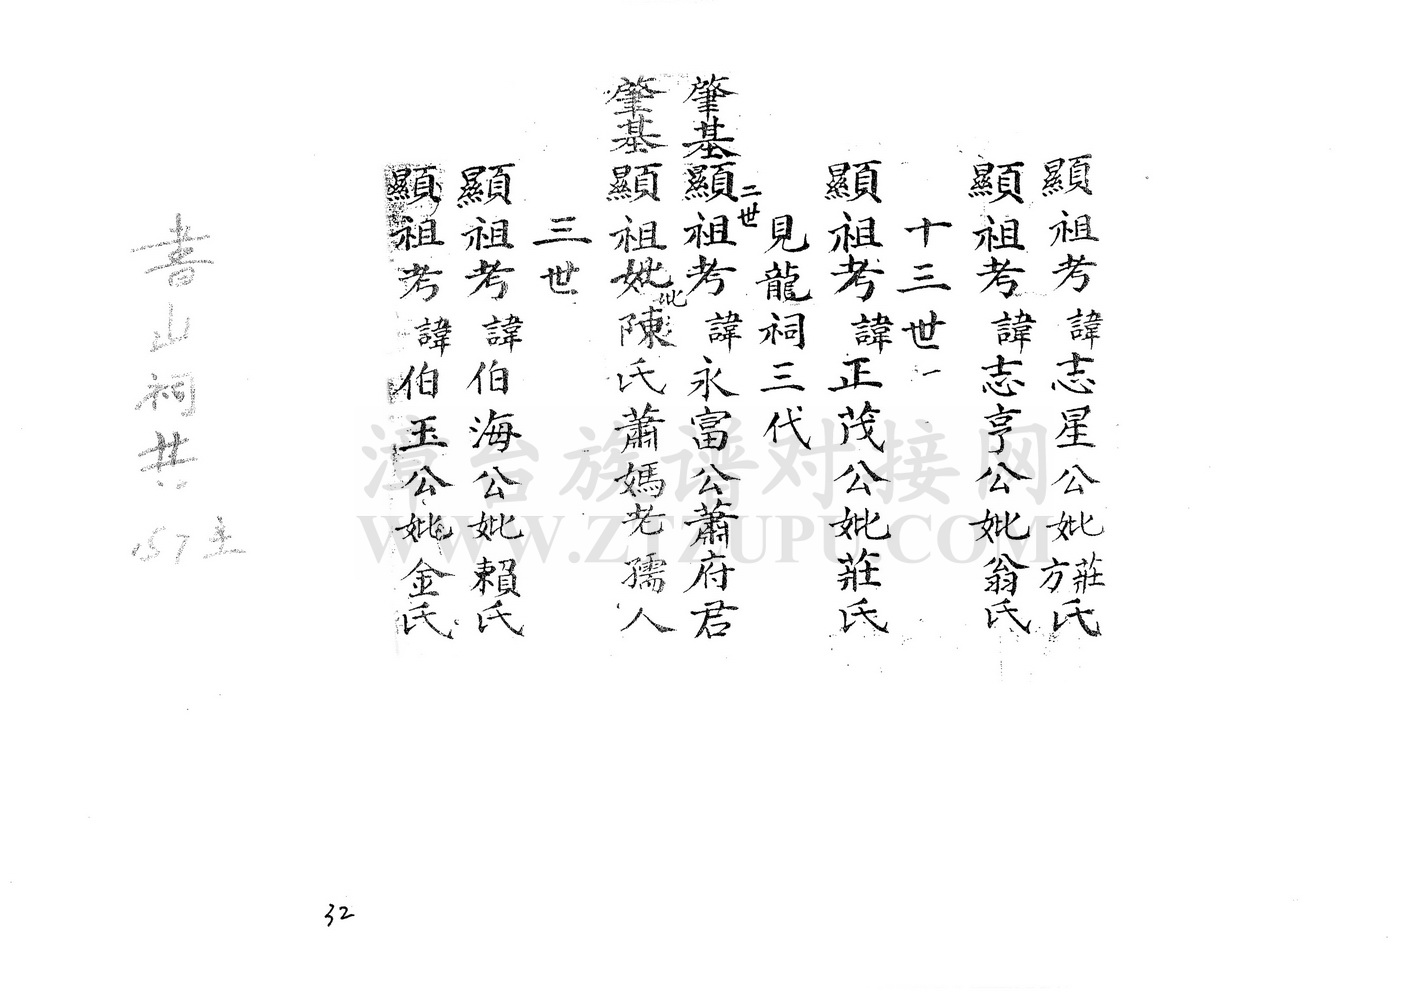 顯祖考諱志星公妣莊方氏
顯祖考諱志亨公妣翁氏
十三世
顯祖考諱正茂公妣莊氏
見龍祠三代
二世
肇基顯祖考諱永富公蕭府君
肇基顯祖妣陳氏蕭媽老孺人
妣
三世
顯祖考諱伯海公妣賴氏
顯祖考諱伯玉公妣金氏
書山祠共157主
32
漳台族谱对接网
WWW.ZTZUPU.COM